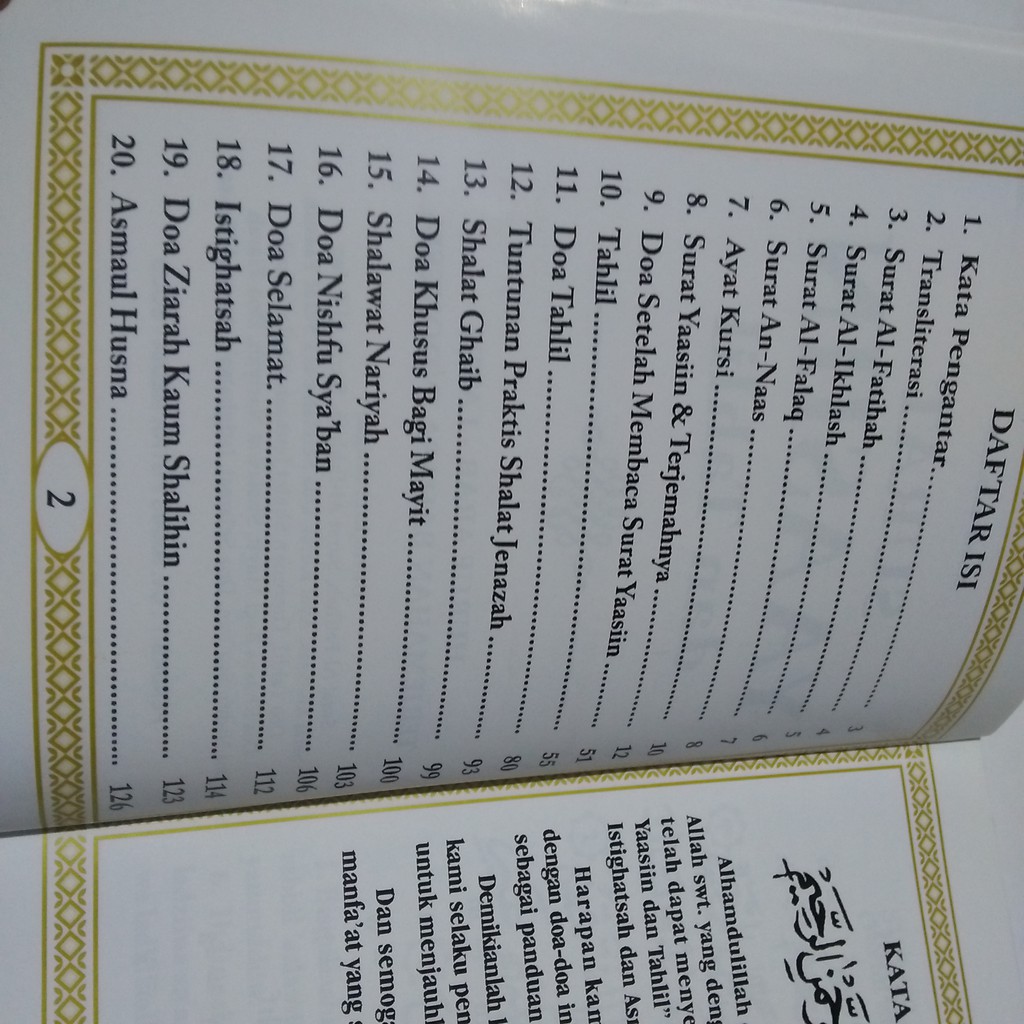 DAFTAR ISI
1. Kata Pengantar ........ 3
2. Transliterasi ........ 4
3. Surat Al-Fatihah ........ 5
4. Surat Al-Ikhlash ........ 6
5. Surat Al-Falaq ........ 7
6. Surat An-Naas ........ 8
7. Ayat Kursi ........ 10
8. Surat Yaasiin & Terjemahnya ........ 12
9. Doa Setelah Membaca Surat Yaasiin ........ 51
10. Tahlil ........ 55
11. Doa Tahlil ........ 80
12. Tuntunan Praktis Shalat Jenazah ........ 93
13. Shalat Ghaib ........ 99
14. Doa Khusus Bagi Mayit ........ 100
15. Shalawat Nariyah ........ 103
16. Doa Nishfu Sya'ban ........ 106
17. Doa Selamat. ........ 112
18. Istighatsah ........ 114
19. Doa Ziarah Kaum Shalihin ........ 123
20. Asmaul Husna ........ 126
2
KATA
الرَّحِيْمِ
Alhamdulillah
Allah swt. yang deng
telah dapat menye
Yaasiin dan Tahlil"
Istighatsah dan Asm
Harapan kam
dengan doa-doa in
sebagai panduan
Demikianlah
kami selaku pen
untuk menjauhl
Dan semoga
manfa'at yang